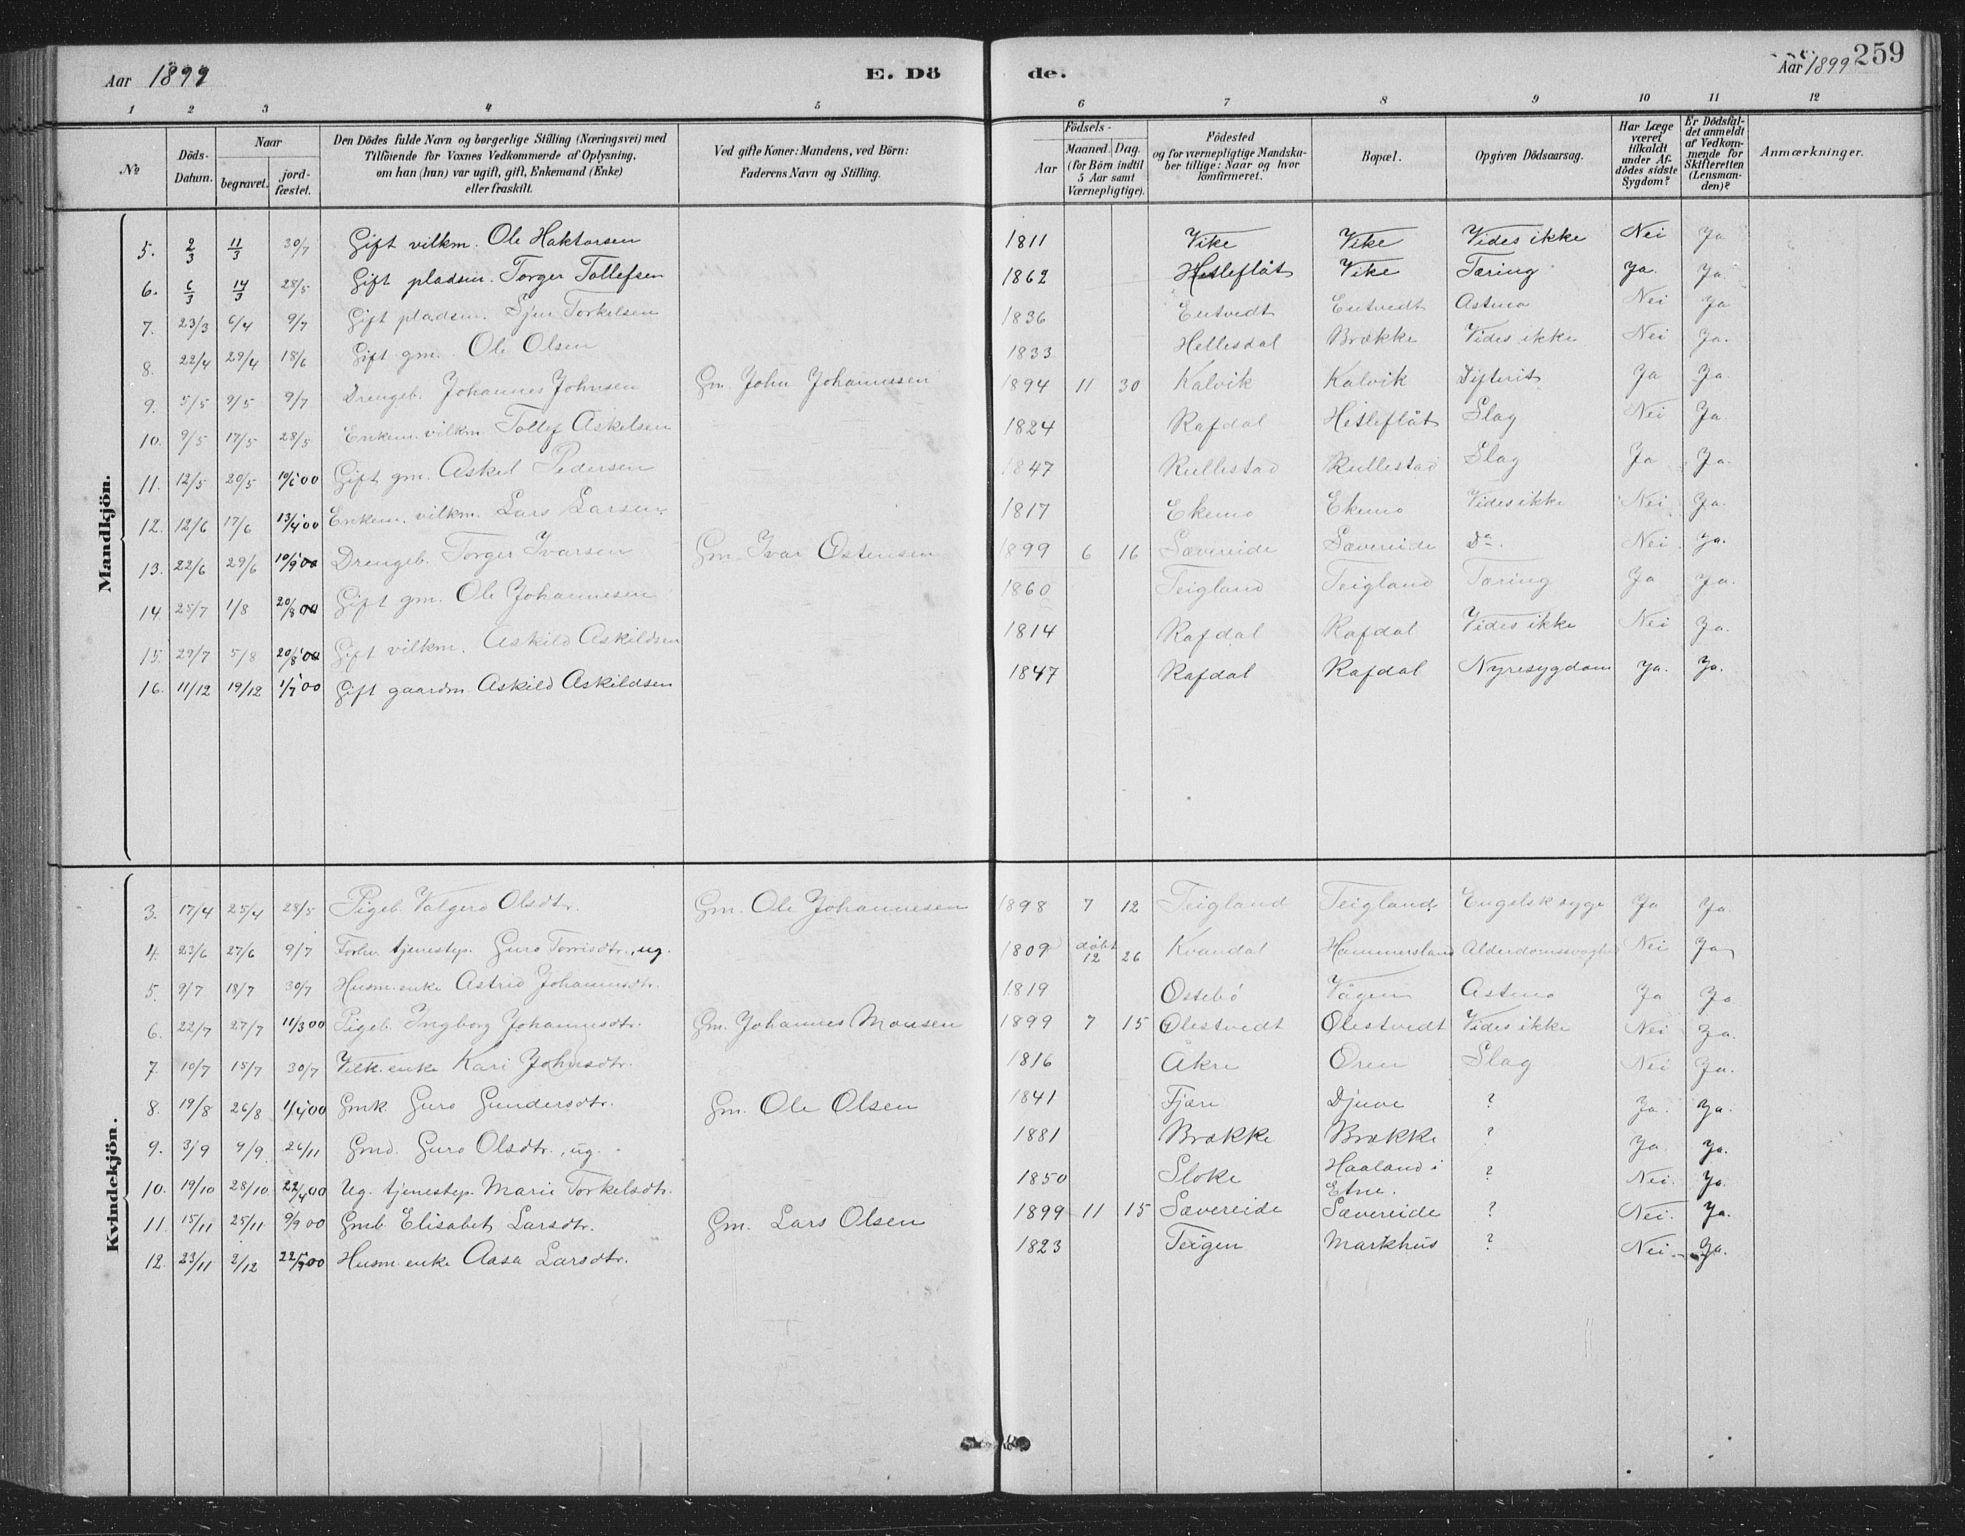 Aar 1899 E. Dö de. Aar 1899 259
1 2 3 4 5 6 7 8 9 10 11 12
No
Döds-Datum.
Naar
begravet.
jordfæstet.
Den Dödes fulde Navn og borgerlige Stilling (Næringsvei) med
Tilföiende for Voxnes Vedkommende af Oplysning,
om han (hun) var ugift, gift, Enkemand (Enke)
eller fraskilt.
Ved gifte Koner: Mandens, ved Börn:
Faderens Navn og Stilling.
Födsels-
Aar
Maaned. Dag.
(for Börn indtil
5 Aar samt
Værnepligtige).
Födested
og for værnepligtige Mandskaber tillige: Naar og hvor
konfirmeret.
Bopæl.
Opgiven Dödsaarsag.
Har Læge
været
tilkaldt
under Afdödes sidste
Sygdom?
Er Dödsfaldet anmeldt
af Vedkommende for
Skifteretten
(Lensmanden)?
Anmærkninger.
Mandkjön.
5. 2/3 11/3 30/7 Gift vilkm. Ole Haktorsen 1811 Vike Vike Vides ikke Nei Ja
6. 6/3 14/3 28/5 Gift pladsm. Torger Tollefsen 1862 Hetleflåt Vike Tæring Ja. Ja.
7. 23/3 6/4 9/7 Gift pladsm. Sjur Torkelsen 1836 Entvedt Entvedt Astma Nei Ja
8. 22/4 29/4 18/6 Gift gm. Ole Olsen 1833 Hellesdal Brække Vides ikke Nei Ja.
9. 5/5 9/5 9/7 Drengeb. Johannes Johnsen Gm. John Johannesen 1894 11 30 Kalvik Kalvik Difterit Ja Ja.
10. 9/5 17/5 28/5 Enkem. vilkm. Tollef Askelsen 1824 Rafdal Hetleflåt Slag Nei Ja.
11. 12/5 20/5 10/6 00 Gift gm. Askel Pedersen 1847 Rullestad Rullestad Slag Ja Ja.
12. 12/6 17/6 13/4 00 Enkem. vilkm. Lars Larsen 1817 Ekemo Ekemo Vides ikke Nei Ja.
13. 22/6 29/6 10/9 00 Drengeb. Torger Ivarsen Gm. Ivar Ostensen 1899 6 16 Sævereide Sævereide Do. Nei. Ja.
14. 25/7 1/8 20/8 00 Gift gm. Ole Johannesen 1860 Teigland Teigland Tæring Ja Ja.
15. 29/7 5/8 20/8 00 Gift vilkm. Askild Askildsen 1814 Rafdal Rafdal Vides ikke Nei Ja.
16. 11/12 19/12 1/7 00 Gift gaardm Askild Askildsen 1847 Rafdal Rafdal Nyresygdom Ja. Ja.
Kvindekjön.
3. 17/4 25/4 28/5 Pigeb. Valgero Olsdtr. Gm. Ole Johannesen 1898 7 12 Teigland Teigland Engelsk syge Ja Ja.
4. 23/6 27/6 9/7 Forhv. tjenestep. Guro Torrisdtr., ug. 1809 døbt 12 26 Kvandal Hammersland Alderdomssvaghed Nei Ja
5. 9/7 18/7 30/7 Husm. enke Astrid Johannesdtr. 1819 Ostebö Vågen Astma Ja Ja.
6. 22/7 27/7 11/3 00 Pigeb. Ingborg Johannesdtr. Gm. Johannes Monsen 1899 7 15 Ølestvedt Ølestvedt Vides ikke Nei Ja.
7. 10/7 15/7 30/7 Vilk. enke Kari Johnsdtr. 1816 Åkre Øren Slag Nei Ja.
8. 19/8 26/8 1/4 00 Gmk. Guro Gundersdtr. Gm. Ole Olsen 1841 Fjæri Djuve ? Ja. Ja.
9. 3/9 9/9 26/11 Gmd. Guro Olsdtr., ug. 1881 Brække Brække ? Ja. Ja.
10. 19/10 28/10 22/4 00 Ug. tjenestep. Marie Torkelsdtr. 1850 Sloke Haaland i Etne. ? Nei. Ja.
11. 15/11 25/11 9/9 00 Gmb Elisabet Larsdtr. Gm. Lars Olsen 1899 11 15 Sævereide Sævereide ? Nei. Ja.
12. 23/11 2/12 22/7 00 Husm. enke Aasa Larsdtr. 1823 Teigen Markhus ? Nei. Ja.